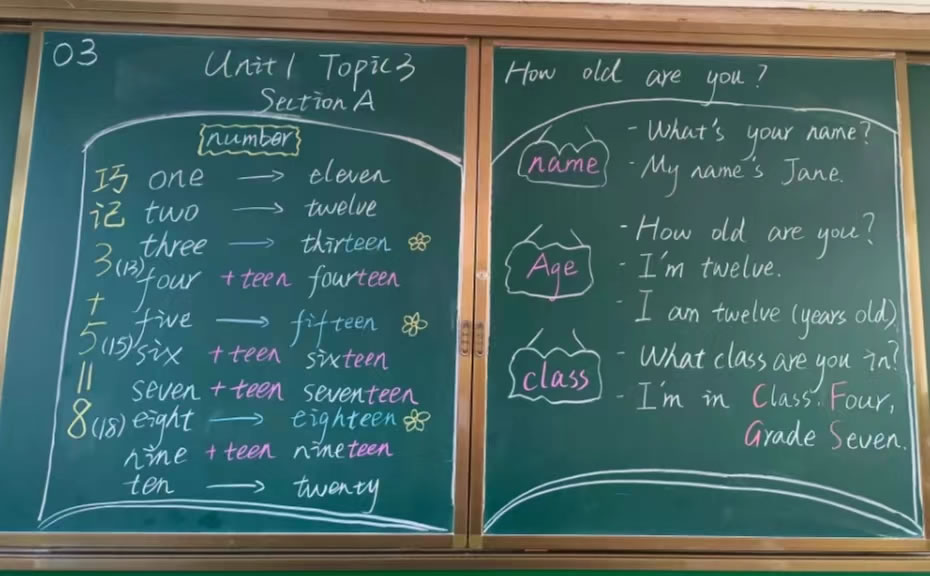 03
Unit 1 Topic 3
Section A
number
巧 one → eleven
记 two → twelve
three → thirteen
3(13)
four +teen fourteen
+
five → fifteen
5(15) six +teen sixteen
=
seven +teen seventeen
8(18) eight → eighteen
nine +teen nineteen
ten → twenty
How old are you?
name
- What's your name?
- My name's Jane.
Age
- How old are you?
- I'm twelve.
- I am twelve (years old)
class
- What class are you in?
- I'm in Class Four,
Grade Seven.